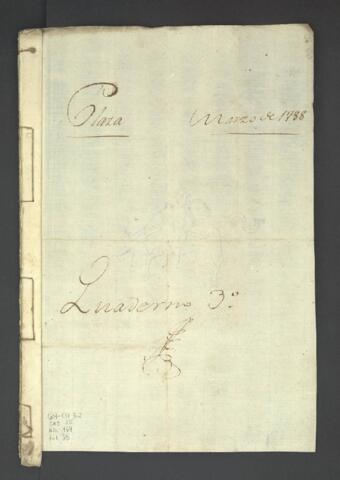 Plaza Marzo de 1788
Quaderno 3º